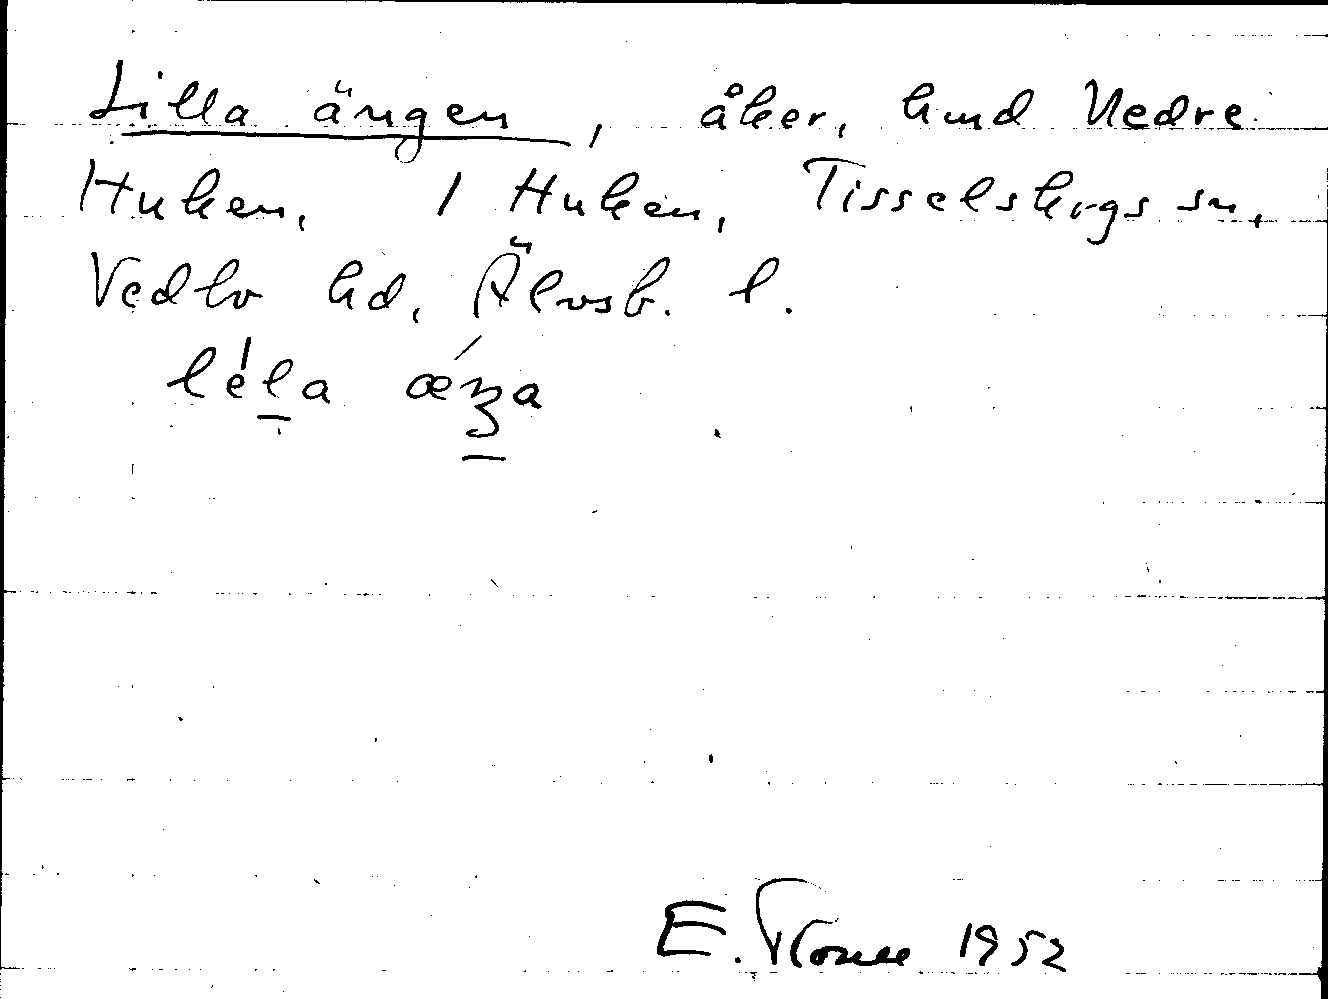 Lilla ängen, åker, hmd Nedre
Huken, 1 Huken, Tisselskogs sn,
Vedbo hd, Älvsb. l.
léla ǽŋa
E. 1952